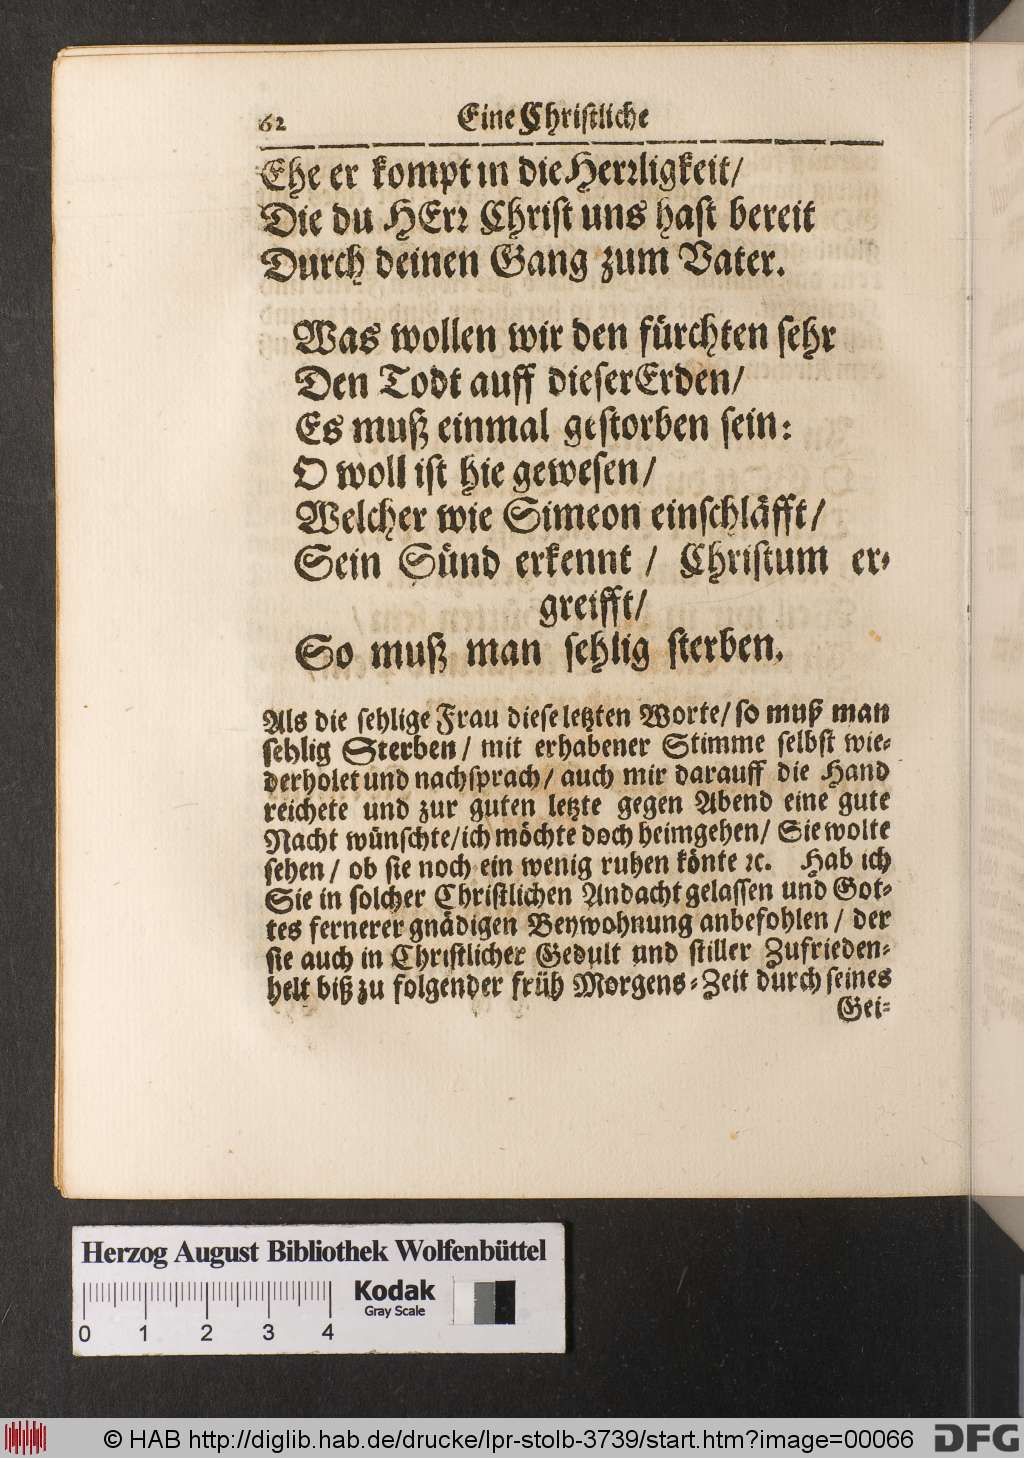 62 Eine Christliche
Ehe er kompt in die Herꝛligkeit/
Die du HErꝛ Christ uns hast bereit
Durch deinen Gang zum Vater.
Was wollen wir den fürchten sehr
Den Todt auff dieser Erden/
Es muß einmal gestorben sein:
O woll ist hie gewesen/
Welcher wie Simeon einschläfft/
Sein Sünd erkennt / Christum er-
greifft/
So muß man sehlig sterben.
Als die sehlige Frau diese letzten Worte/ so muß man
sehlig Sterben/ mit erhabener Stimme selbst wie-
derholet und nachsprach/ auch mir darauff die Hand
reichete und zur guten letzte gegen Abend eine gute
Nacht wünschte/ ich möchte doch heimgehen/ Sie wolte
sehen/ ob sie noch ein wenig ruhen könte ꝛc. Hab ich
Sie in solcher Christlichen Andacht gelassen und Got-
tes fernerer gnädigen Beywohnung anbefohlen/ der
sie auch in Christlicher Gedult und stiller Zufrieden-
heit biß zu folgender früh Morgens-Zeit durch seines
Gei-
Herzog August Bibliothek Wolfenbüttel
Kodak
Gray Scale
0 1 2 3 4
© HAB http://diglib.hab.de/drucke/lpr-stolb-3739/start.htm?image=00066
DFG